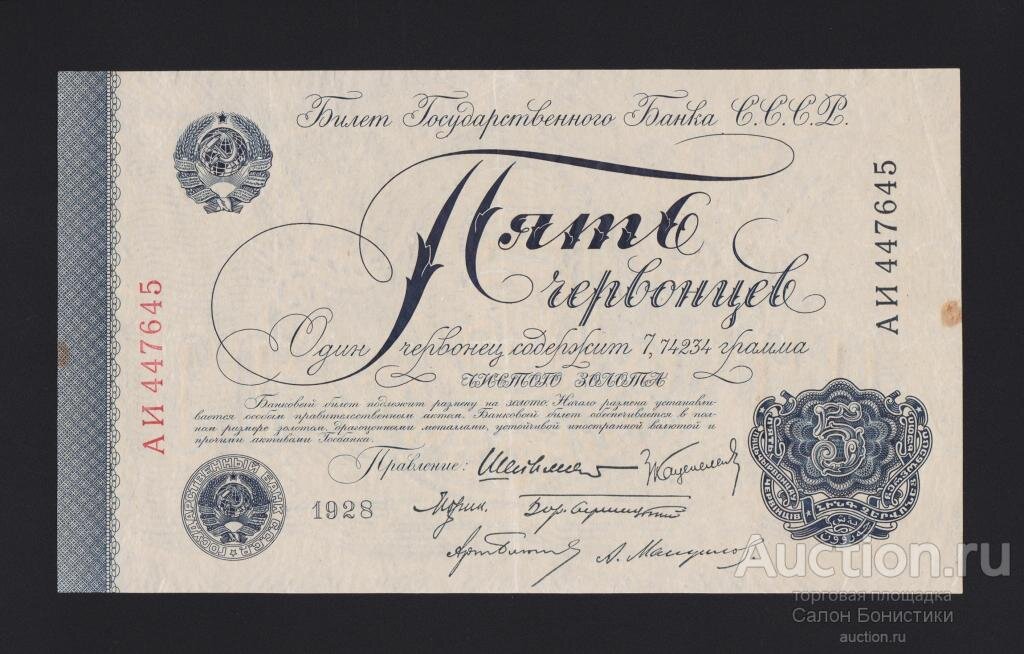 Билет Государственного Банка С.С.С.Р.
Пять
червонцев
Один червонец содержит 7,74234 грамма
ЧИСТОГО ЗОЛОТА
Банковый билет подлежит размену на золото. Начало размена устанавли-
вается особым правительственным актом. Банковый билет обеспечивается в пол-
ном размере золотом, драгоценными металлами, устойчивой иностранной валютой и
прочими активами Госбанка.
Правление:
1928
АИ 447645
АИ 447645
ГОСУДАРСТВЕННЫЙ БАНК С.С.С.Р.
5
Auction.ru
торговая площадка
Салон Бонистики
auction.ru